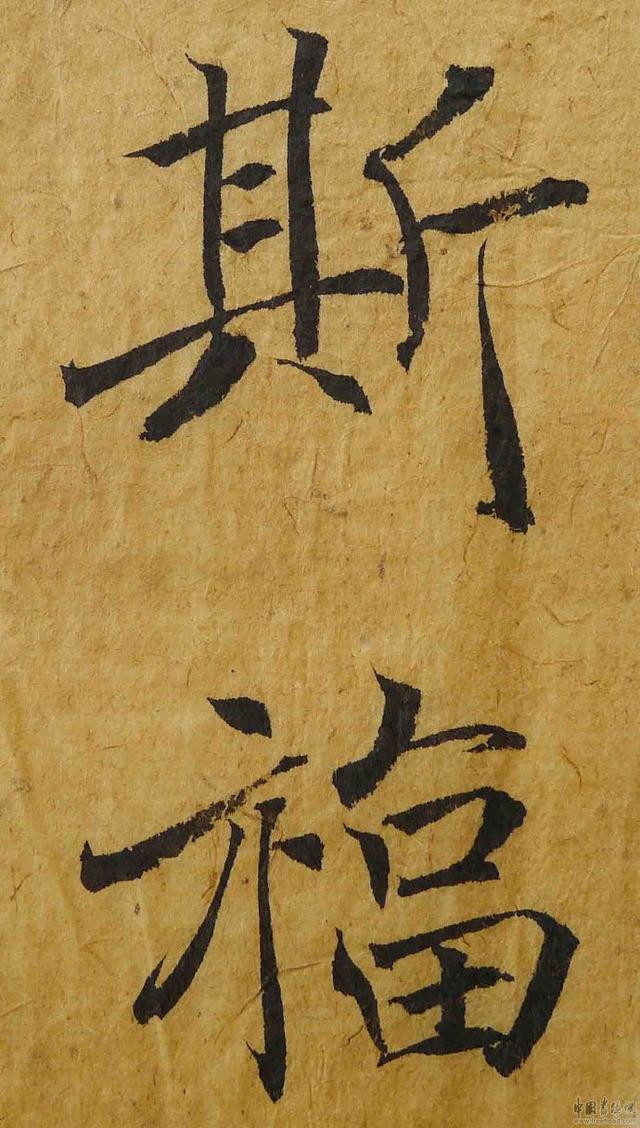 斯
福
中国书法网
www.freehead.com